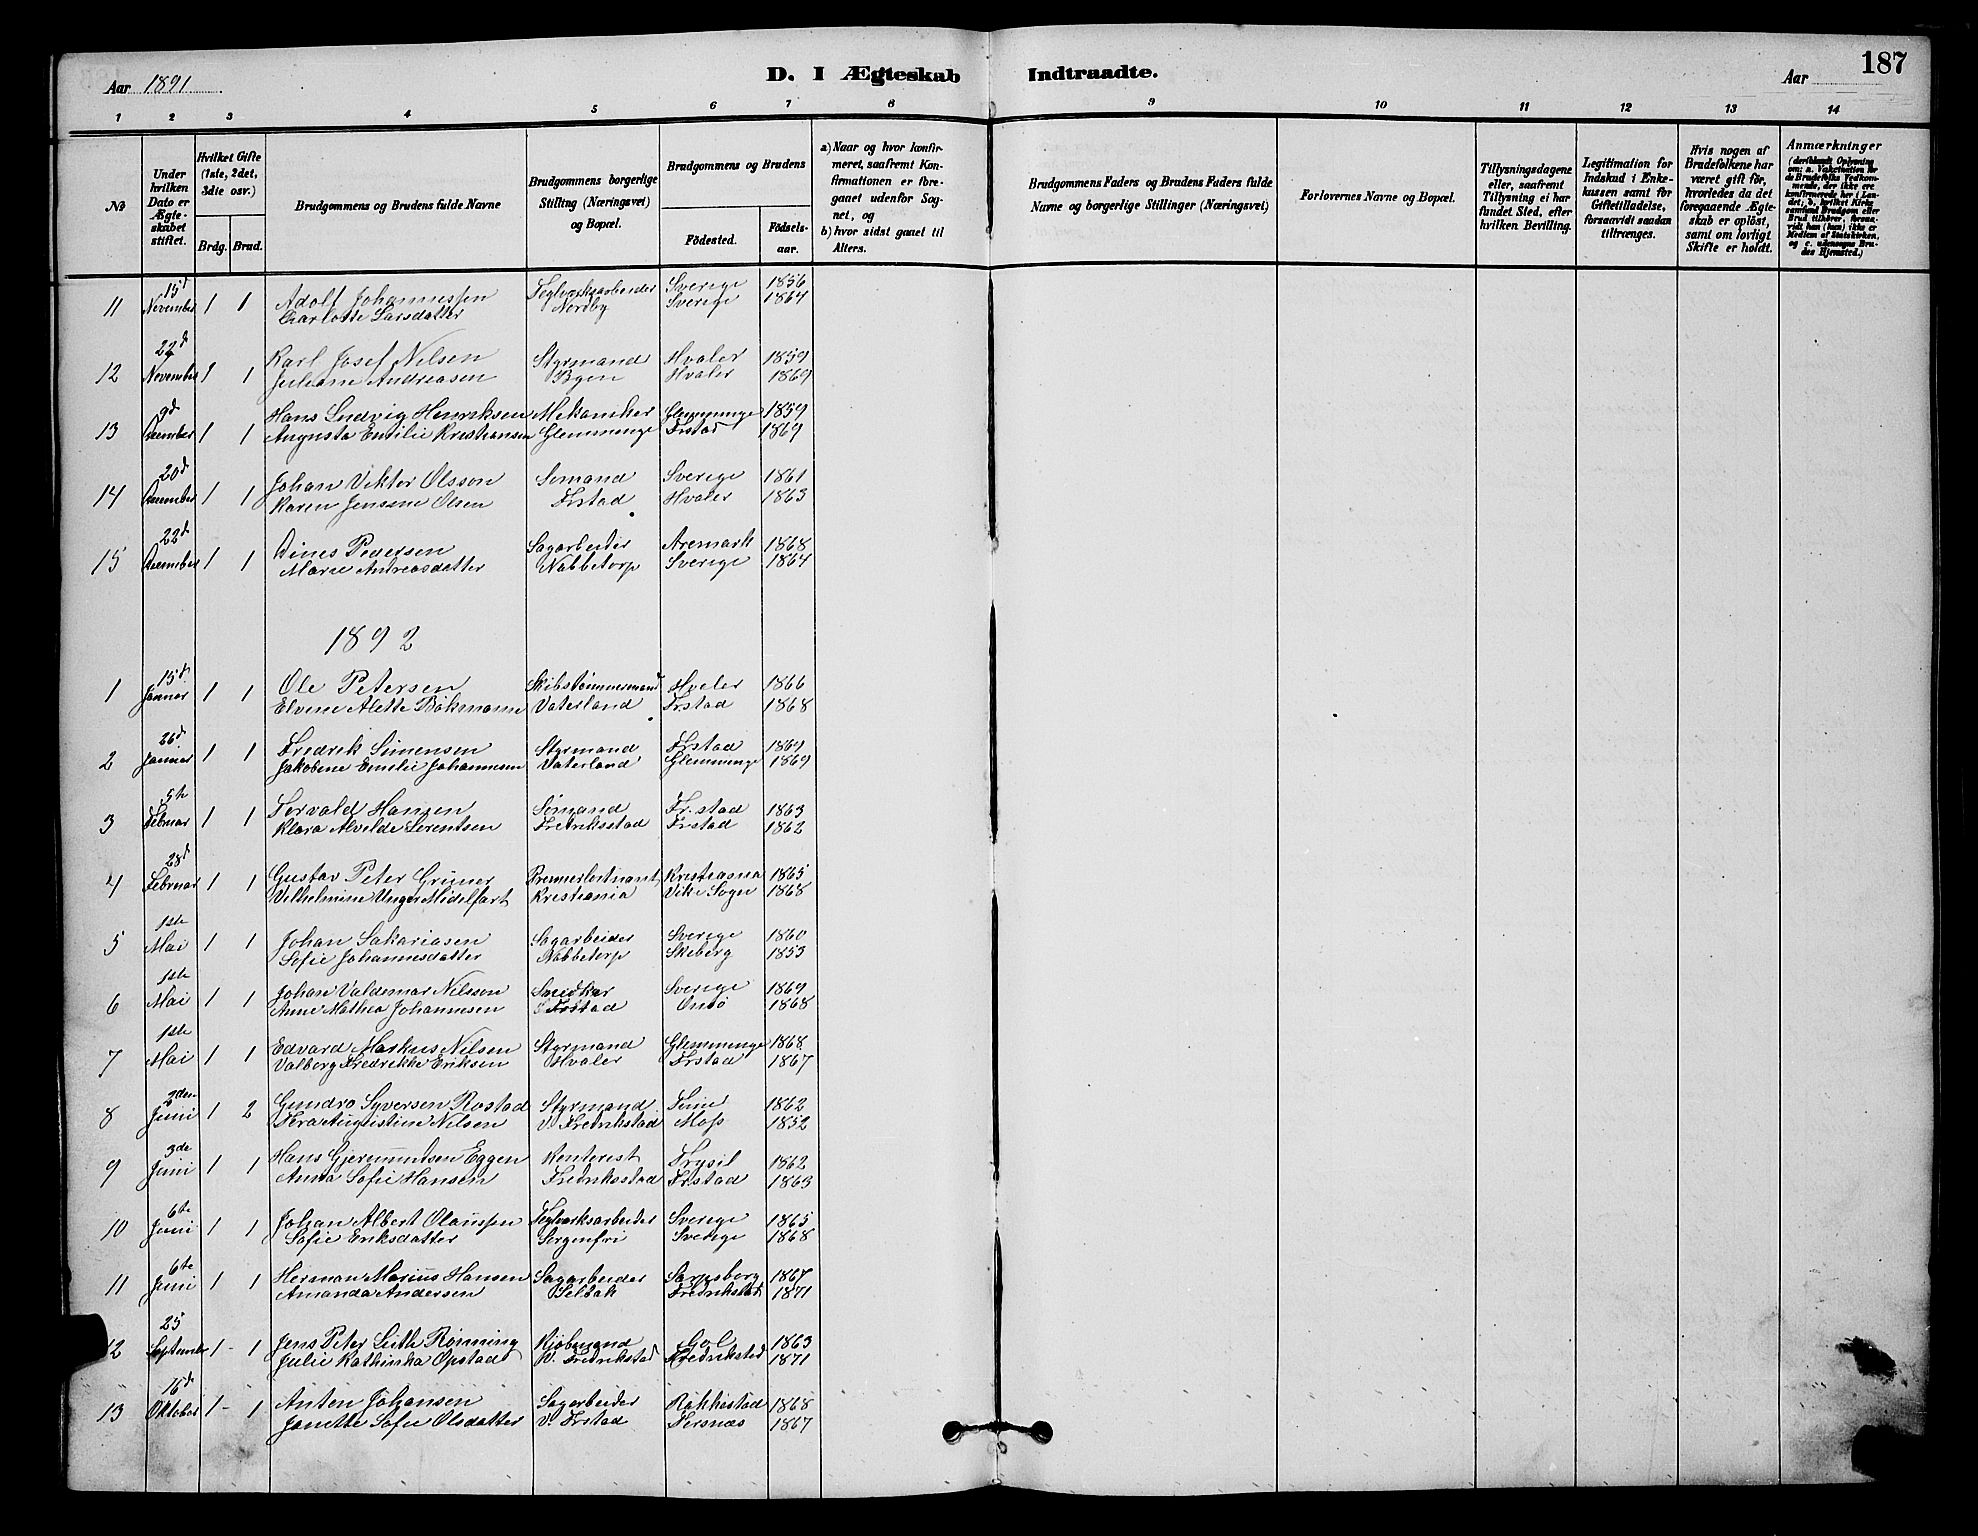 187
Aar 1891
D. I Ægteskab Indtraadte.
Aar
1 2 3 4 5 6 7 8 9 10 11 12 13 14
No
Under hvilken Dato er Ægteskabet stiftet.
Hvilket Gifte (1ste, 2det, 3die osv.)
Brdg. Brud.
Brudgommens og Brudens fulde Navne
Brudgommens borgerlige Stilling (Næringsvei) og Bopæl.
Brudgommens og Brudens
Fødested. Fødselsaar.
a) Naar og hvor konfirmeret, saafremt Konfirmationen er foregaaet udenfor Sognet, og
b) hvor sidst gaaet til Alters.
Brudgommens Faders og Brudens Faders fulde Navne og borgerlige Stillinger (Næringsvei)
Forlovernes Navne og Bopæl.
Tillysningsdagene eller, saafremt Tillysning ei har fundet Sted, efter hvilken Bevilling.
Legitimation for Indskud i Enkekassen samt for Giftetilladelse, forsaavidt saadan tiltrænges.
Hvis nogen af Brudefolkene har været gift før, hvorledes da det foregaaende Ægteskab er opløst, samt om lovligt Skifte er holdt.
Anmærkninger
11 15d November 1 1 Adolf Johannessen Teglverksarbeider Sverige 1856
Charlotte Larsdatter Nordby Sverige 1864
12 22d November 1 1 Karl Josef Nilsen Styrmand Hvaler 1859
Juliane Andreasen Byen Hvaler 1869
13 9d December 1 1 Hans Ludvig Henriksen Mekaniker Glemminge 1859
Augusta Emilie Kristiansen Glemminge Frstad 1869
14 20d December 1 1 Johan Viktor Olsson Sømand Sverige 1861
Karen Jensine Olsen Frstad Hvaler 1863
15 22d December 1 1 Dines Pedersen Sagarbeider Aremark 1868
Marie Andreasdatter Nabbetorp Sverige 1864
1892
1 15d Januar 1 1 Ole Petersen Skibstømmermand Hvaler 1866
Elvine Alette Bökmann Vaterland Frstad 1868
2 26d Januar 1 1 Fredrik Simensen Styrmand Frstad 1869
Jakobine Emilie Johannesen Vaterland Glemminge 1869
3 5te Februar 1 1 Torvald Hansen Sömand Fr.stad 1863
Klara Alvilde Lorentsen Fredriksstad Frstad 1862
4 28d Februar 1 1 Gustav Peter Grüner Premierløitnant Kristiania 1865
Vilhelmine Unger Midelfart Kristiania Vike Sogn 1868
5 1ste Mai 1 1 Johan Sakariasen Sagarbeider Sverige 1860
Sofie Johannesdatter Nabbetorp Skeberg 1853
6 1ste Mai 1 1 Johan Valdemar Nilsson Snedker Sverige 1869
Anne Mathea Johannesen Frstad Onsö 1868
7 1ste Mai 1 1 Edvard Markus Nilsen Styrmand Glemminge 1868
Valborg Fredrikke Eriksen Hvaler Frstad 1867
8 2den Juni 1 2 Gundro Syversen Rostad Styrmand 1862
Augustine Nilsen V. Fredrikstad Moss 1852
9 3de Juni 1 1 Hans Gjermundsen Eggen Kontorist Trysil 1862
Anna Sofie Hansen Fredriksstad Fr.stad 1863
10 6te Juni 1 1 Johan Albert Olaussen Teglverksarbeider Sverige 1865
Sofie Eriksdatter Sorgenfri Sverige 1868
11 6te Juni 1 1 Herman Marius Hansen Sagarbeider Sarpsborg 1867
Amanda Andersen Selbak Fredrikstad 1871
12 25 September 1 - 1 Jens Peter Lütke Rönning Kjøbmand Gol 1863
Julie Kathinka Opstad V. Fredrikstad Fredrikstad 1871
13 16d Oktober 1 - 1 Anton Johansen Sagarbeider Rakkestad 1868
Janette Sofie Olsdatter V. Frstad Tersnæs 1867